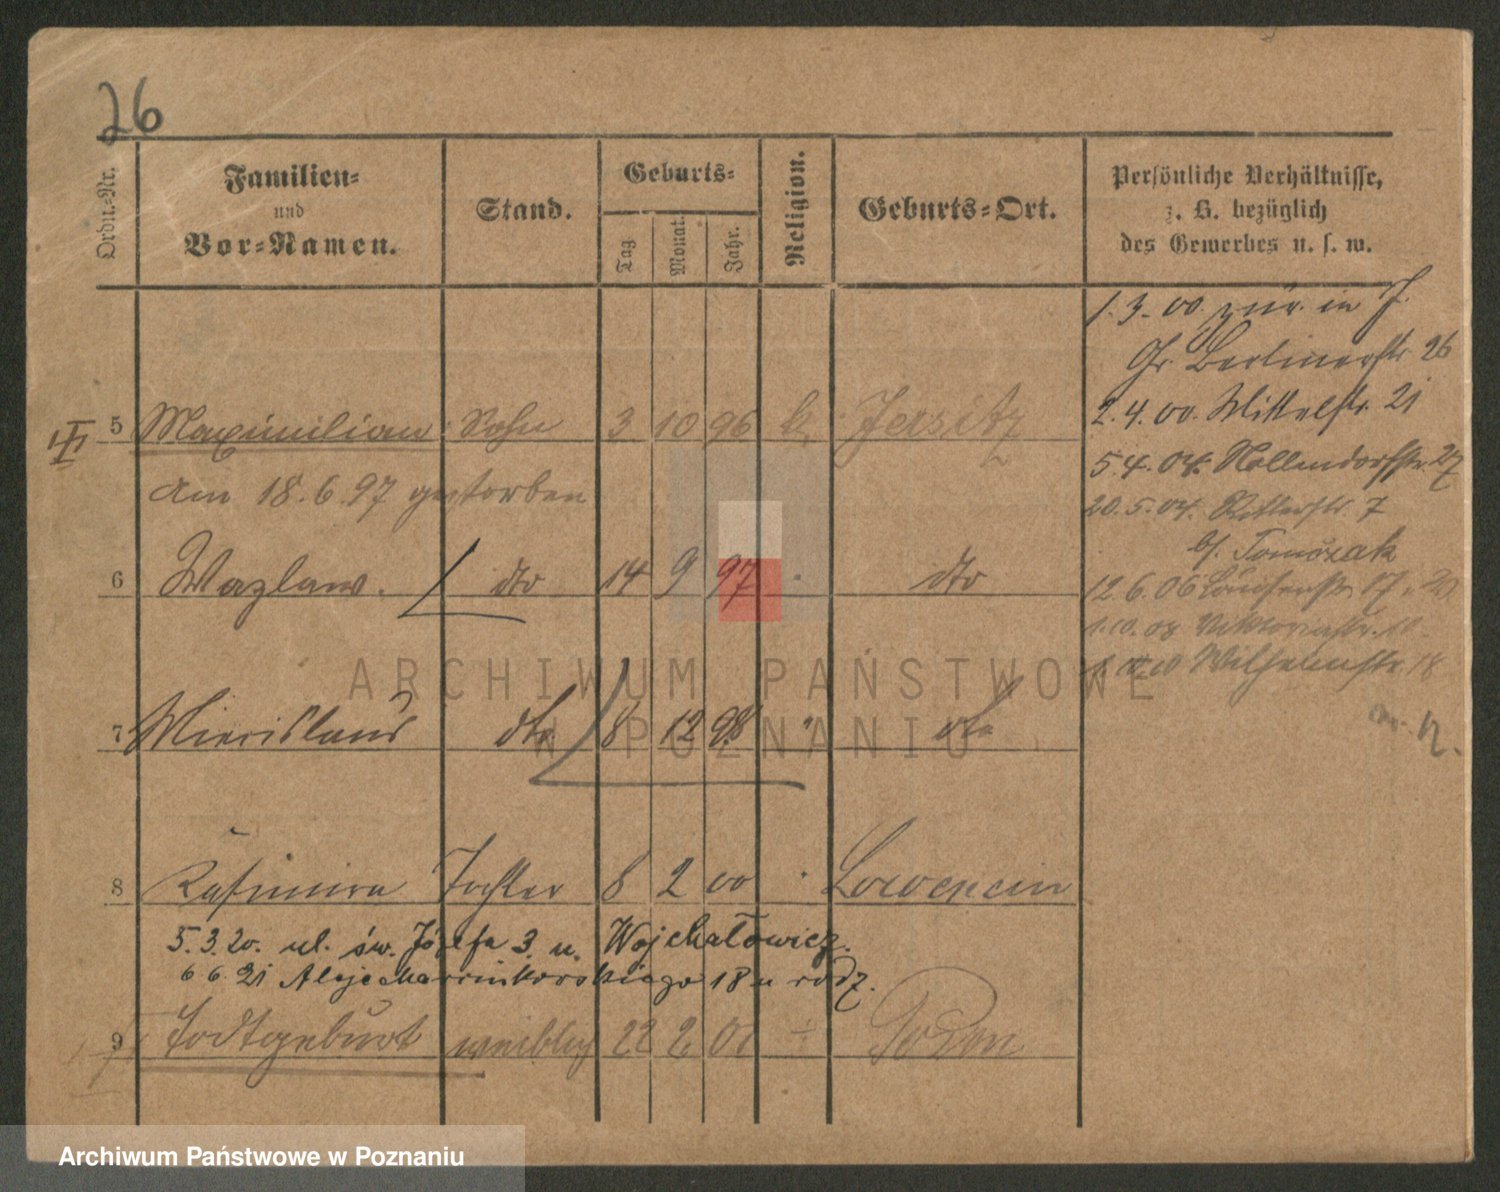 26
Ordn.-Nr.
Familien-
und
Vor-Namen.
Stand.
Geburts-
Tag
Monat.
Jahr.
Religion.
Geburts-Ort.
Persönliche Verhältnisse,
z. B. bezüglich
des Gewerbes u. s. w.
1. 3. 00. zur. in J.
Gr. Berlinerstr. 26
2. 4. 00. Mittelstr. 21
5 Maximilian Sohn 3 10 96 k. Jersitz
5. 4. 04. Nollendorfstr. 27
am 18. 6. 97 gestorben
20. 5. 04. Ritterstr. 7
b/. Tomczak
6 Wazlaw. dto 14 9 97 dto
12. 6. 06
1. 10. 08 Viktoriastr.
Wilhelmstr. 18
7 Miecislaus dto 8 12 98 " dto
8 Kasimira Tochter 8 2 00 Lowencin
5. 3. 20. ul. św. Józefa 3. u. Wojchałowicz.
6 6. 21 Aleje Marcinkowskiego 18 u rodz.
9 Todtgeburt weiblich 22 2 01 Posen
ARCHIWUM PAŃSTWOWE
W POZNANIU
Archiwum Państwowe w Poznaniu